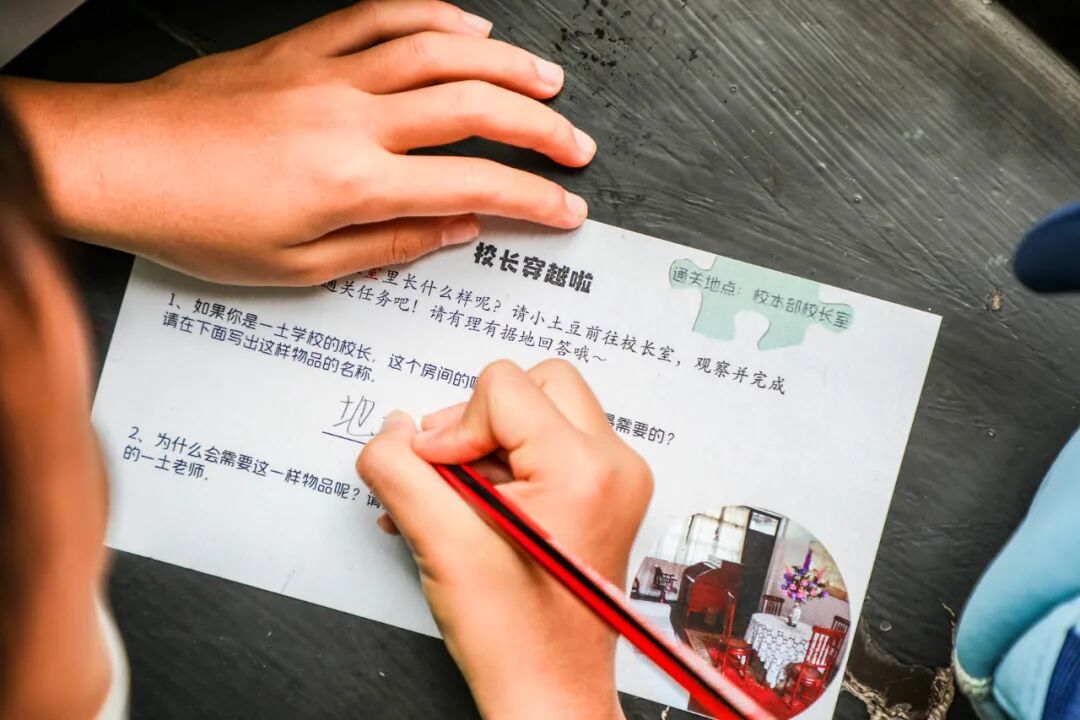 校长穿越啦
通关地点：校本部校长室
室里长什么样呢？请小土豆前往校长室，观察并完成
通关任务吧！请有理有据地回答哦～
1、如果你是一土学校的校长，这个房间的 需要的？
请在下面写出这样物品的名称．
地
2、为什么会需要这一样物品呢？
的一土老师．